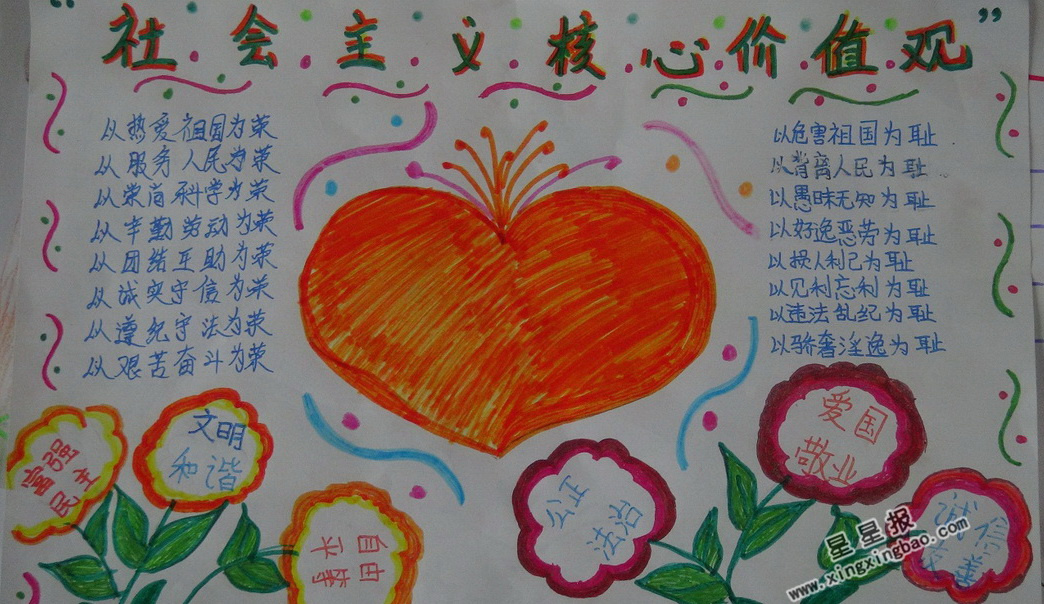 “社会主义核心价值观”
从热爱祖国为荣
从服务人民为荣
从崇尚科学为荣
从辛勤劳动为荣
从团结互助为荣
从诚实守信为荣
从遵纪守法为荣
从艰苦奋斗为荣
以危害祖国为耻
以背离人民为耻
以愚昧无知为耻
以好逸恶劳为耻
以损人利己为耻
以见利忘利为耻
以违法乱纪为耻
以骄奢淫逸为耻
富强
民主
文明
和谐
自由
平等
公证
法治
爱国
敬业
诚信
友善
星星报
www.xingxingbao.com